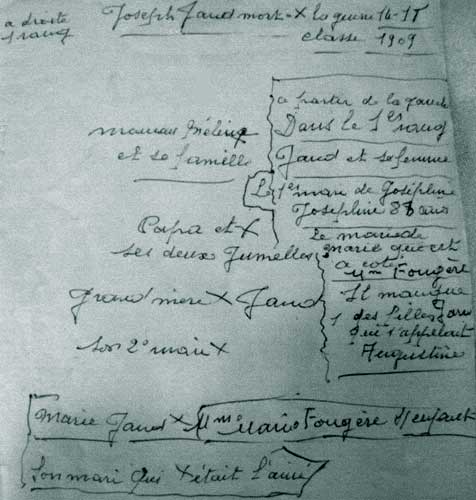 a droite
1 rang
Joseph Jaud mort X la guerre 14-18
classe 1909
a partir de la Gauche
Dans le 1er rang
maman Méline
et sa famille
Jaud et sa femme
Le 1er mari de Joséphine
Joséphine 88 ans
Papa et X
ses deux Jumelles
Le mari de
Marie qui est
a coté
Mme Fougère
Grand mère X Jaud
Il manque
1 des filles Jaud
qui s'appelait
Augustine
Son 2e mari X
Marie Jaud X Mme Marie Fougère enfant
Son mari qui X était l'ainé